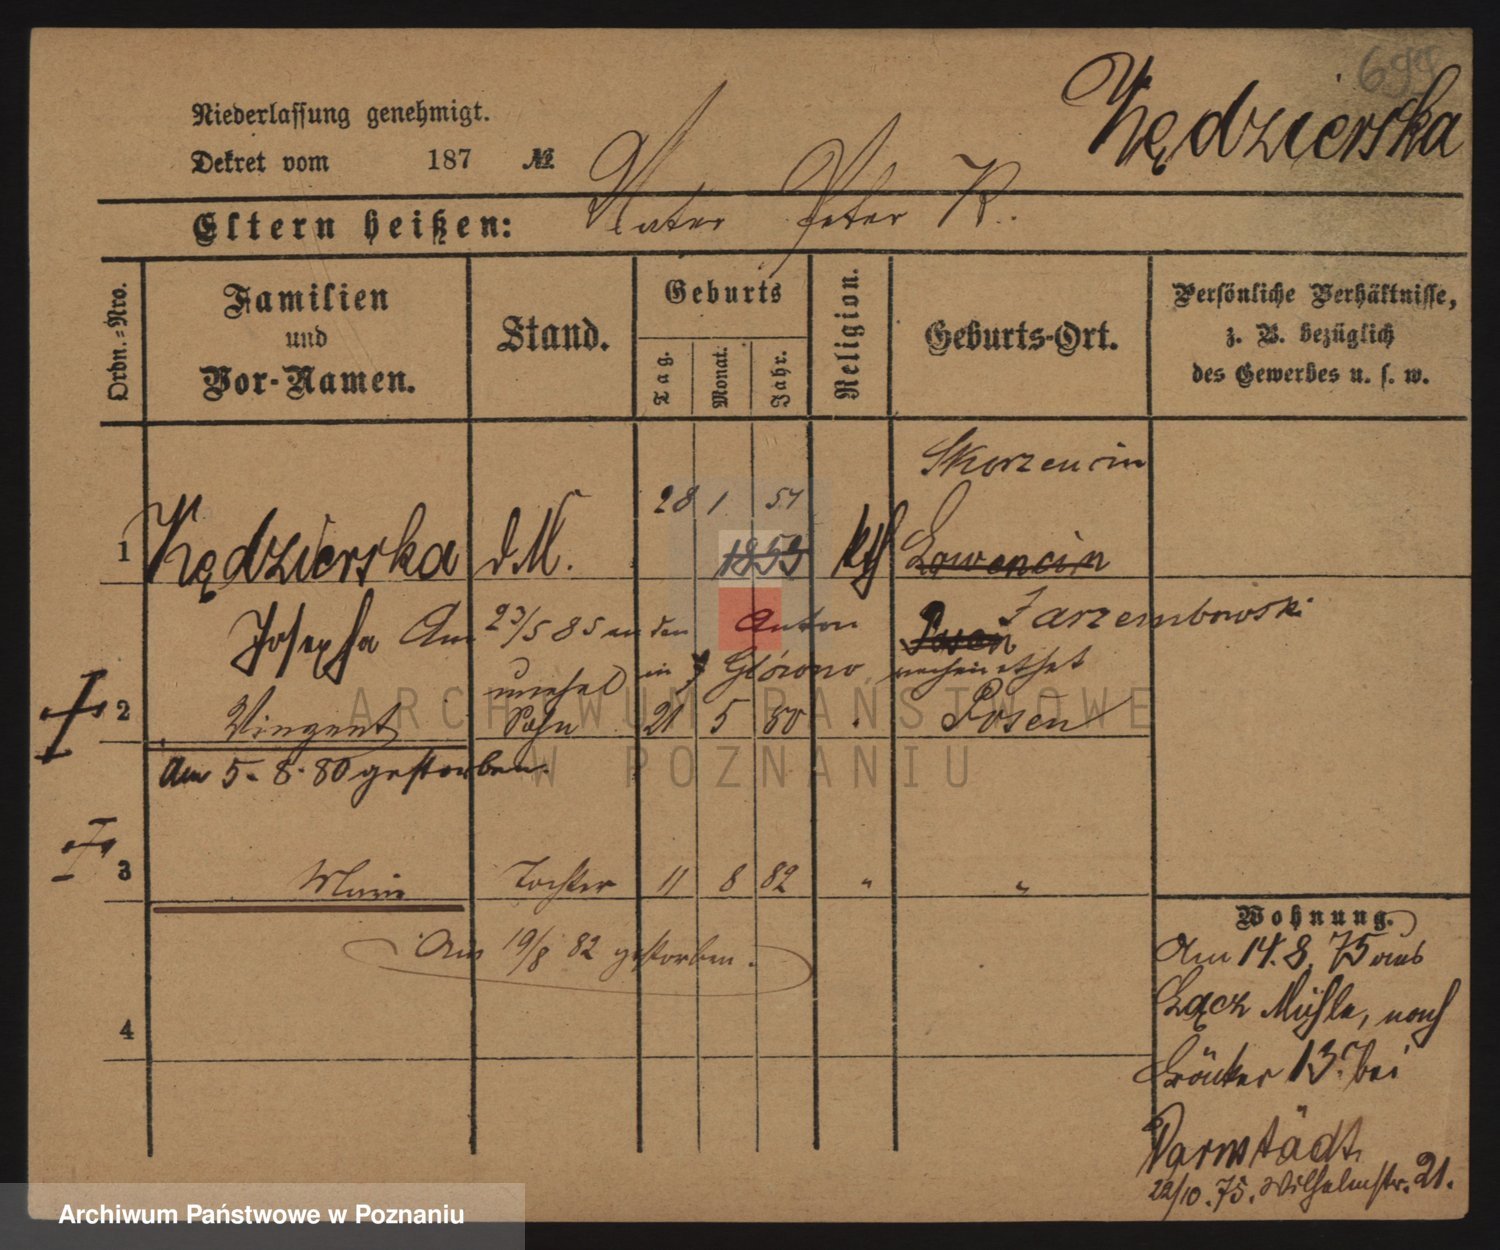 699
Kędzierska
Niederlassung genehmigt.
Dekret vom 187 №
Eltern heißen: Vater Peter K.
Ordn.-Nro.
Familien und Vor-Namen.
Stand.
Geburts
Tag.
Monat.
Jahr.
Religion.
Geburts-Ort.
Persönliche Verhältnisse,
z. B. bezüglich
des Gewerbes u. s. w.
Skorzencin
28 1 57
1 Kędzierska d. M. 1853 kth Lowencin
Josepha Am 23/5 85 an den Anton Zarzembowski
Posen
in Glówno verheirathet
unehel
2 Vinzent Sohn 21 5 80 " Posen
Am 5. 8. 80 gestorben.
3 Marie Tochter 11 8 82 " "
Am 19/8 82 gestorben.
4
Wohnung.
Am 14. 8. 75 aus
Łącz Mühle, nach
13. bei
Darmstädt.
22/10. 75. Wilhelmstr. 21.
ARCHIWUM PAŃSTWOWE
W POZNANIU
Archiwum Państwowe w Poznaniu